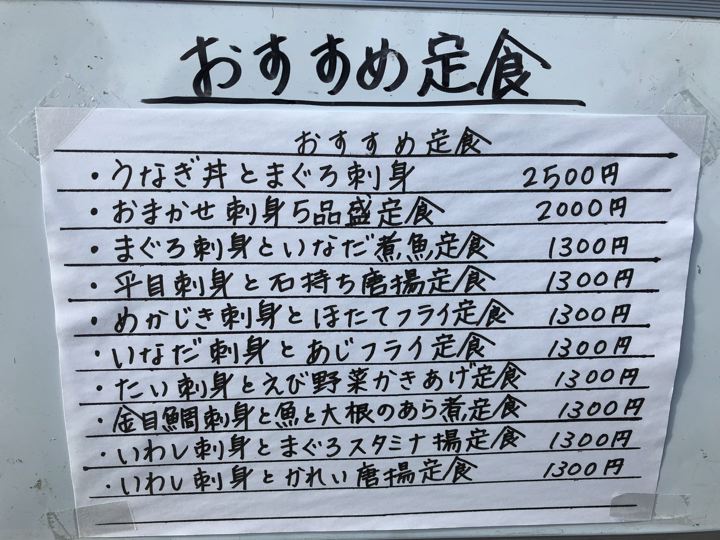 おすすめ定食
おすすめ定食
・うなぎ丼とまぐろ刺身 2500円
・おまかせ刺身5品盛定食 2000円
・まぐろ刺身といなだ煮魚定食 1300円
・平目刺身と石持ち唐揚定食 1300円
・めかじき刺身とほたてフライ定食 1300円
・いなだ刺身とあじフライ定食 1300円
・たい刺身とえび野菜かきあげ定食 1300円
・金目鯛刺身と魚と大根のあら煮定食 1300円
・いわし刺身とまぐろスタミナ揚定食 1300円
・いわし刺身とかれい唐揚定食 1300円